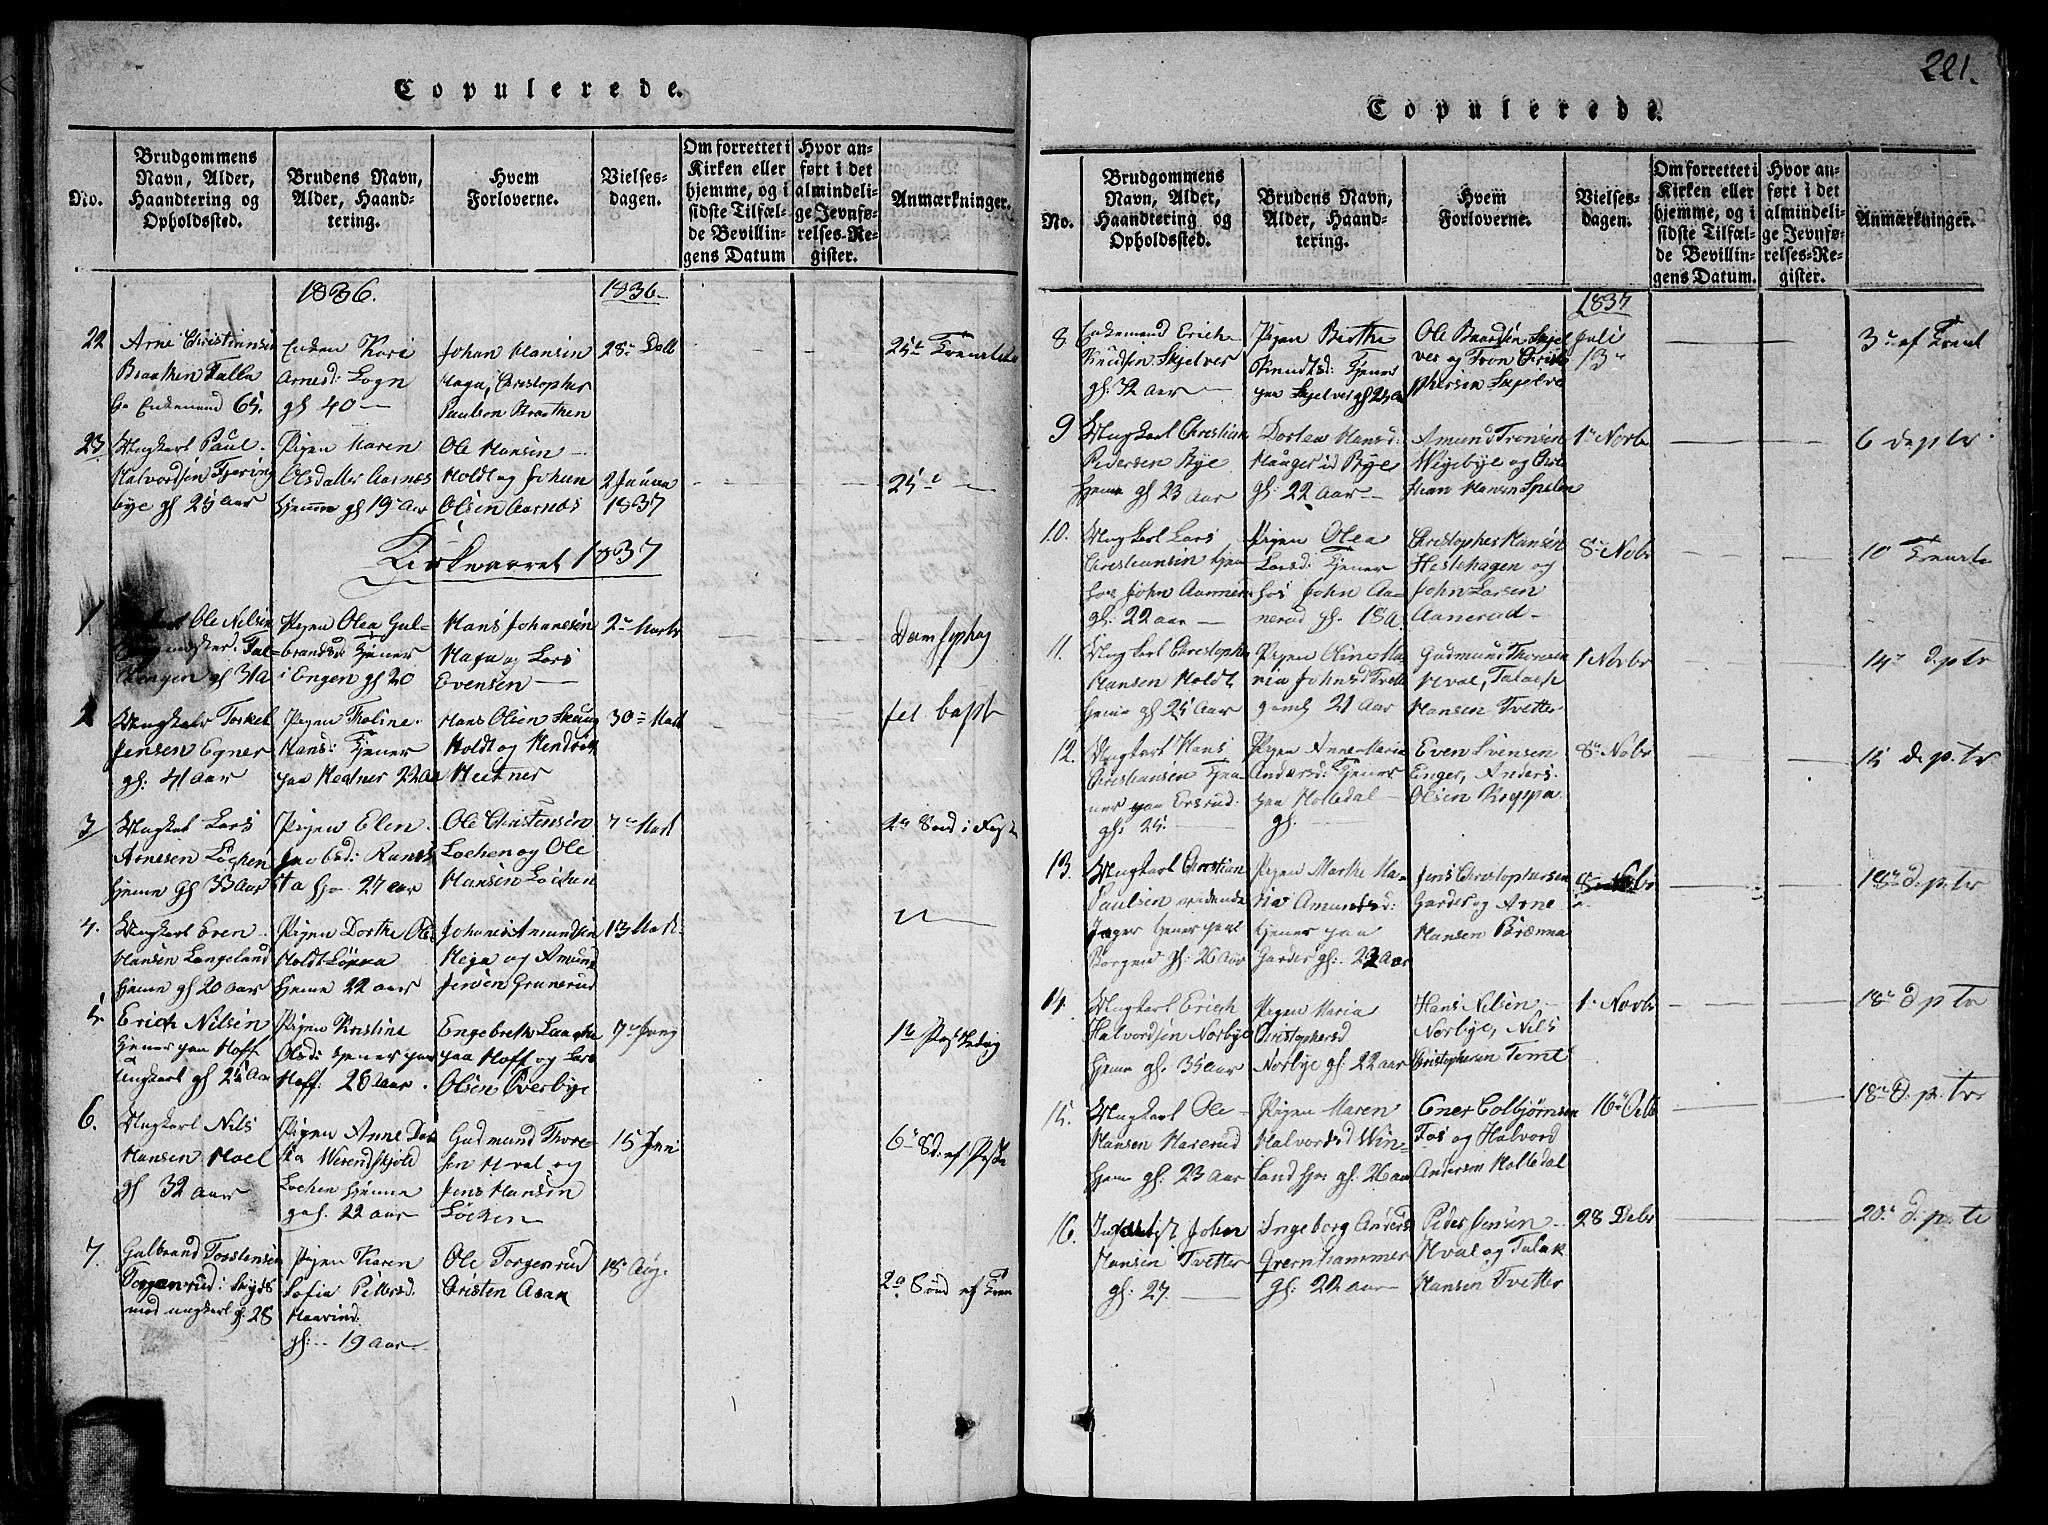 Copulerede.
No.
Brudgommens
Navn, Alder,
Haandtering og
Opholdssted.
Brudens Navn,
Alder, Haand-
tering.
Hvem
Forloverne.
Vielses-
dagen.
Om forrettet i
Kirken eller
hjemme, og i
sidste Tilfæl-
de Bevillin-
gens Datum
Hvor an-
ført i det
almindeli-
ge Jevnfø-
relses-Re-
gister.
Anmærkninger.
1836.
1836
22
Arne Christiansen
Braathen Talla
Enkemand 65.
Enken Kari
Arnesd: Logn
gl 40
Johan Hansen
Haga, Christopher
Paulsen Braathen
28
25
23
Ungkarl Paul
Halvordsen Fjering
bye gl 25 Aar
Pigen Maren
Olsdatter Aarnæs
hjemme gl 19 Aar
Ole Hansen
Holdt og Johan
Olsen Aarnæs
2 Janua
1837
25
Kirkeaaret 1837
1
Ole Nilsen
Engen gl 31 a
Pigen Olea Gul-
brandsd: tjener
i Engen gl 20
Hans Johanesen
Haga og Lars
Evensen
2 Marts
2
Ungkarl Torkel
Jensen Egner
gl: 41 aar
Pigen Tholine
Hansd: Tjener
paa Heitner 22 aa
Hans Olsen Skaug
Holdt og Hendrik
Heitner
30 Mart
3
Ungkarl Lars
Arnesen Løchen
hjeme gl 33 Aar
Pigen Elen
Jacobsd: Kams
sta hjo 27 aar
Ole Christensen
Løchen og Ole
Hansen Løchen
7 Mart
4.
Ungkarl Even
Hansen Langeland
hjeme gl 20 aar
Pigen Dorthe Ols
Holdt Løkka
hjeme 22 aar
Johanes Amundsen
Heja og Amund
Jensen Grunerud
13 Mart
5.
Erich Nilsen
tjener paa Hoff
Ungkarl gl 25 Aar
Pigen Kristine
Olsd: tjener paa
Hoff: 28 aar.
Engebreth Laache
paa Hoff og Lars
Olsen Overbye
7
6.
Ungkarl Nils
Hansen Hoel
gl 32 aar
Pigen Anne Dor
thea Werendskjold
Lochen hjemme
gal. 22 aar
Gudmund Thore-
sen Hval og
Jens Hansen
Løchen
15 Juni
7.
Gulbrand Torstensen
Torgenrud: Skyds
mod ungkarl gl: 28
Pigen Karen
Sofia Pettersd.
Haavind
gl: 19 Aar
Ole Torgenrud
Cristen Asak
18 Aug.
221.
Copulerede.
No.
Brudgommens
Navn, Alder,
Haandtering og
Opholdssted.
Brudens Navn,
Alder, Haand-
tering.
Hvem
Forloverne.
Vielses-
dagen.
Om forrettet i
Kirken eller
hjemme, og i
sidste Tilfæl-
de Bevillin-
gens Datum.
Hvor an-
ført i det
almindeli-
ge Jevnfø-
relses-Re-
gister.
Anmærkninger.
1837
8
Enkemand Erich
Knudsen Skjelver
gl: 32 aar
Pigen Berthe
Knudtsd: Tjener
paa Skjelver gl 24 a
Ole Baardsen Skjel
ver og Tron Christo
phersen Skjelve
Juli
13
3 af Trenit
9
Ungkarl Christian
Pedersen Bye
hjeme gl 23 Aar
Dorten Hansd:
Haugerud Bye
gl: 22 aar
Amund Tronsen
Wigebye og Chri
stian Hansen Spelen
1 Novbr
6 de p tr
10.
Ungkarl Lars
Christiansen tjen
hos John Aanneru
gl: 22 aar
Pigen Olea
Larsd: Tjener
hos John Aa-
nerud gl. 18 a.
Christopher Hansen
Hestehagen og
John Larsen
Aanerud
8 Nobr
10
11.
Ungkarl Christopher
Hansen Holdt
hjeme gl 25 Aar
Pigen Oline Ma-
ria Johnsd Tvette
gaml 21 Aar
Gudmund Thoresen
Hval, Talack
Hansen Tvetter
1 Novbr
14 d. p tr
12.
Ungkarl Hans
Christiansen tjen
ner paa Ersrud:
gl: 25.
Pigen Anne Maria
Andersd: Tjener
paa Holledal
gl.
Even Svensen
Enger, Anders
Olsen Koppa
8 Nobr
15 d. p. tr
13.
Ungkarl Christian
Paulsen ridende
Jæger tjener paa
Borgen gl: 26 Aar
Pigen Marthe Ma-
ria Amundsd:
tjener paa
Garder gl: 22 Aar
Jens Christophersen
Garder og Arne
Hansen Brænna
8 Nobr
18 d. p. tr
14.
Ungkarl Erich
Halvordsen Norbye
hjeme gl. 35 aar
Pigen Maria
Christophersd
Norbye gl: 22 aar
Hans Nilsen
Norbye, Nils
Christophersen Tomt
1 Novbr
18 d. p tr
15.
Ungkarl Ole
Hansen Haserud
hjem gl: 23 aar
Pigen Maren
Halvordsd Win-
land hjo: gl: 26 aar
Ener Colbjørnsen
Fos og Halvord
Andersen Holledal
16
18 d. p. tr
16.
John
Hansen Tvetter
gl: 27.
Ingeborg Anders
Grernhammer
gl: 22 aar
Peder Jensen
Hval og Talak
Hansen Tvetter
28 Debr
20 d. p. tr